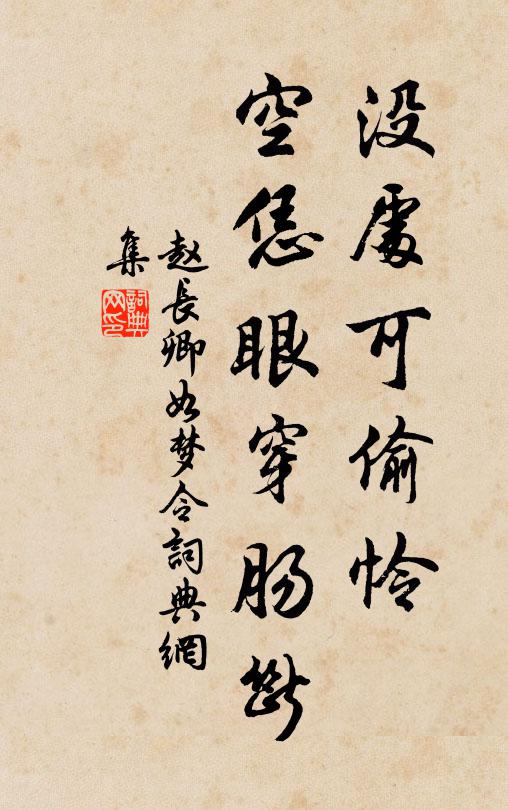 没處可偷怜
空恁眼穿肠斷
赵長卿如梦令詞典網
集
詞典网印